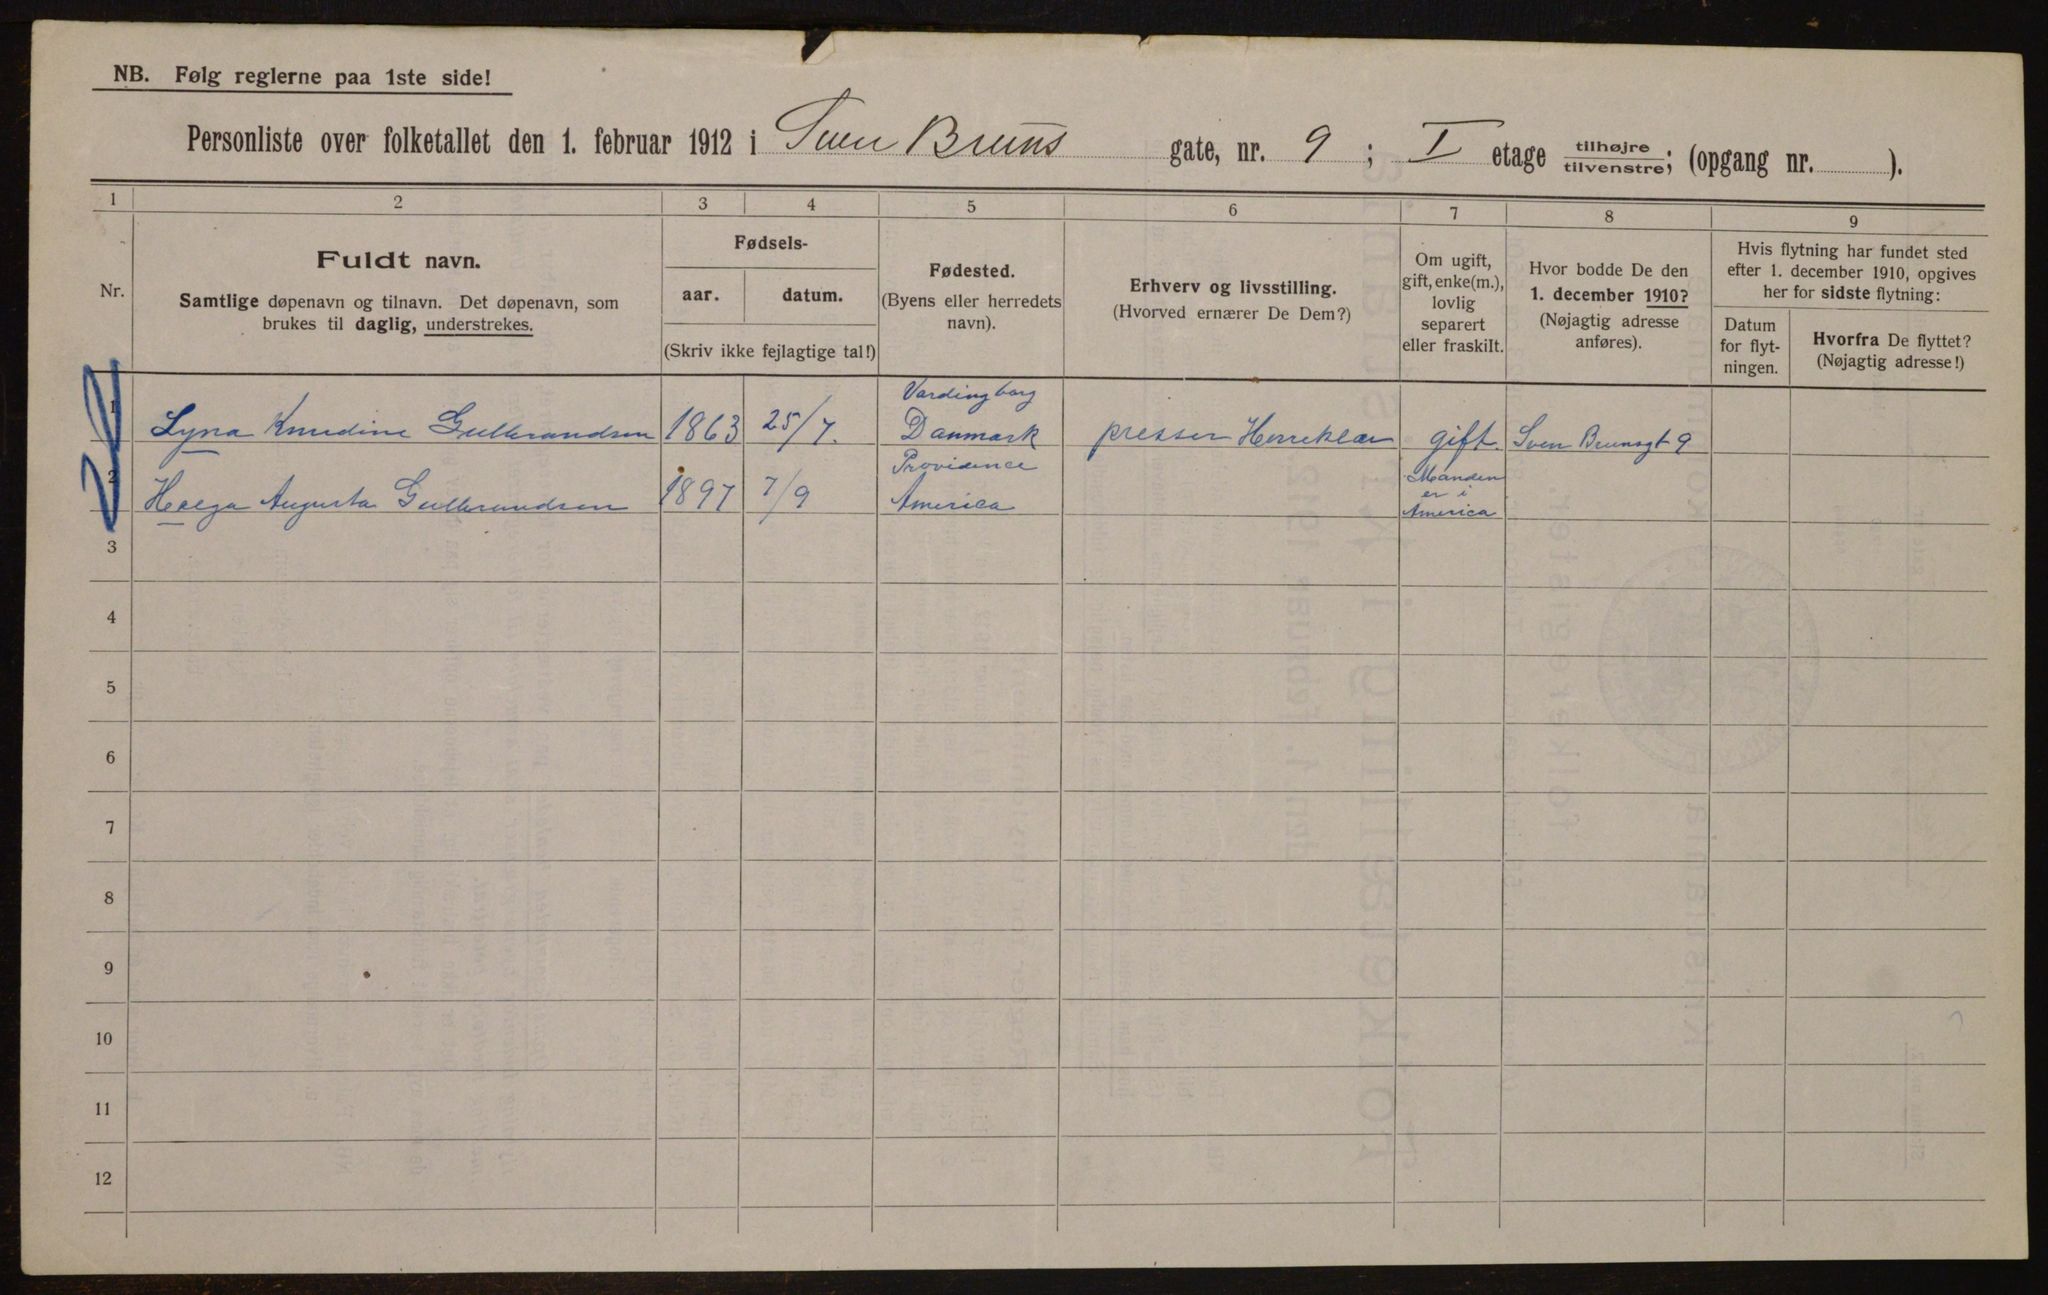 NB. Følg reglerne paa 1ste side!
Personliste over folketallet den 1. februar 1912 i Sven Bruns gate, nr. 9 ; I etage tilhøjre/tilvenstre; (opgang nr. ).
1 2 3 4 5 6 7 8 9
Nr.
Fuldt navn.
Samtlige døpenavn og tilnavn. Det døpenavn, som
brukes til daglig, understrekes.
Fødsels-
aar. datum.
(Skriv ikke fejlagtige tal!)
Fødested.
(Byens eller herredets
navn).
Erhverv og livsstilling.
(Hvorved ernærer De Dem?)
Om ugift,
gift, enke(m.),
lovlig
separert
eller fraskilt.
Hvor bodde De den
1. december 1910?
(Nøjagtig adresse
anføres).
Hvis flytning har fundet sted
efter 1. december 1910, opgives
her for sidste flytning:
Datum
for flyt-
ningen.
Hvorfra De flyttet?
(Nøjagtig adresse!)
Vardingborg
1 Lyna Knudine Gulbrandsen 1863 25/7. Danmark presser Herreklær gift. Sven Brunsgt 9
Providence Manden
2 Helga Augusta Gulbrandsen 1897 7/9 America er i
America
3
4
5
6
7
8
9
10
11
12